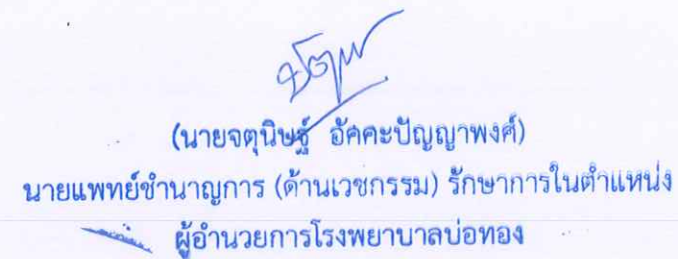 (นายจตุนิษฐ์ อัคคะปัญญาพงศ์)
นายแพทย์ชำนาญการ (ด้านเวชกรรม) รักษาการในตำแหน่ง
ผู้อำนวยการโรงพยาบาลบ่อทอง